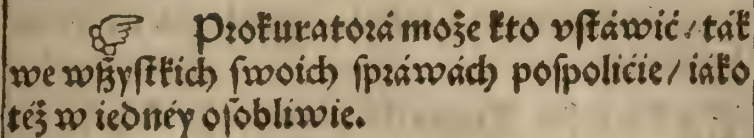 ☞ Prokuratorá może kto vſtáwić / ták
we wßyſtkich ſwoich ſpráwách poſpolićie / iáko
téż w iednéy oſobliwie.